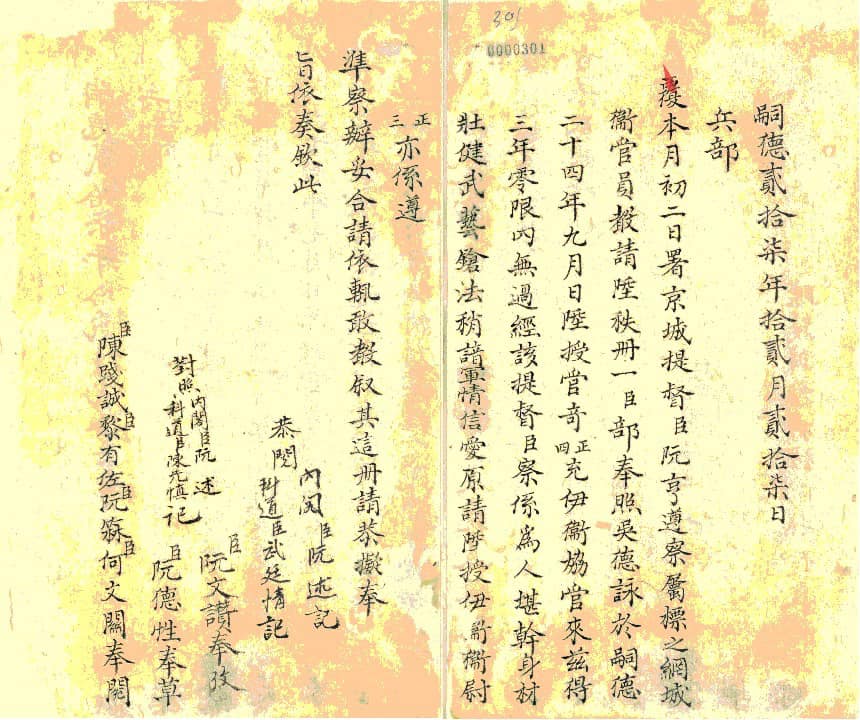 301
0000301
嗣德貳拾柒年拾貳月貳拾柒日
兵部
覆本月初二日署京城提督臣阮亨遵察屬標之網城
衞管員敍請陞秩冊一臣部奉照吳德詠於嗣德
二十四年九月日陞授管奇正四充伊衞協管來茲得
三年零限內無過經該提督臣察係為人堪幹身材
壯健武藝鎗法稍諳軍情信愛原請陞授伊衞衞尉
正三亦係遵
準察辦妥合請依輒敢敍叙其這冊請恭擬奉
旨依奏欽此
內閣臣阮述記
恭閱科道臣武廷情記
臣阮文讚奉攷
臣阮德性奉草
對照內閣臣阮述科道臣陳允慎記
臣陳踐誠臣黎有佐臣阮臣何文關奉閱